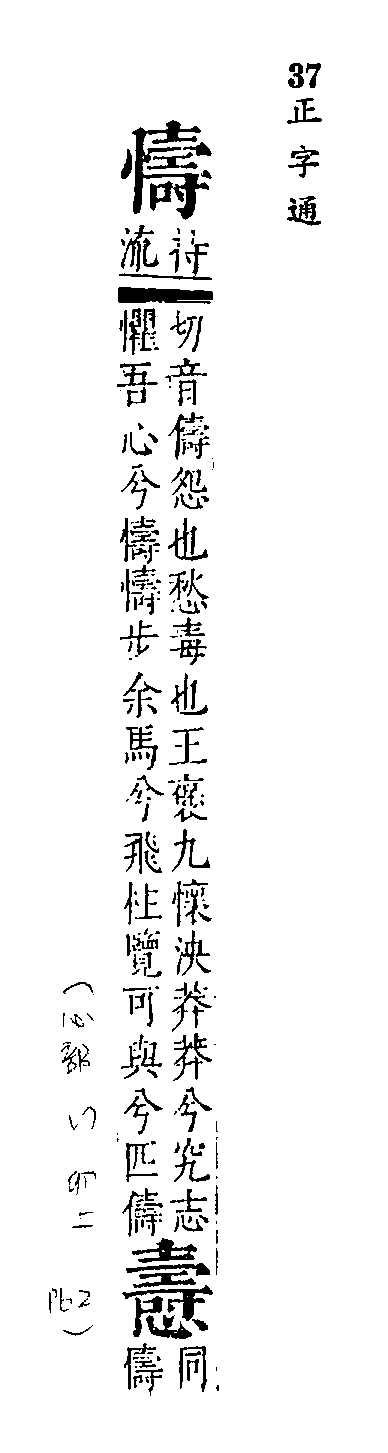 37正字通
懤
持流
切音儔怨也愁毒也王褒九懷泱莽莽兮究志
懼吾心兮懤懤步余馬兮飛柱覽可與兮匹儔
同
儔
(心部 い 四二